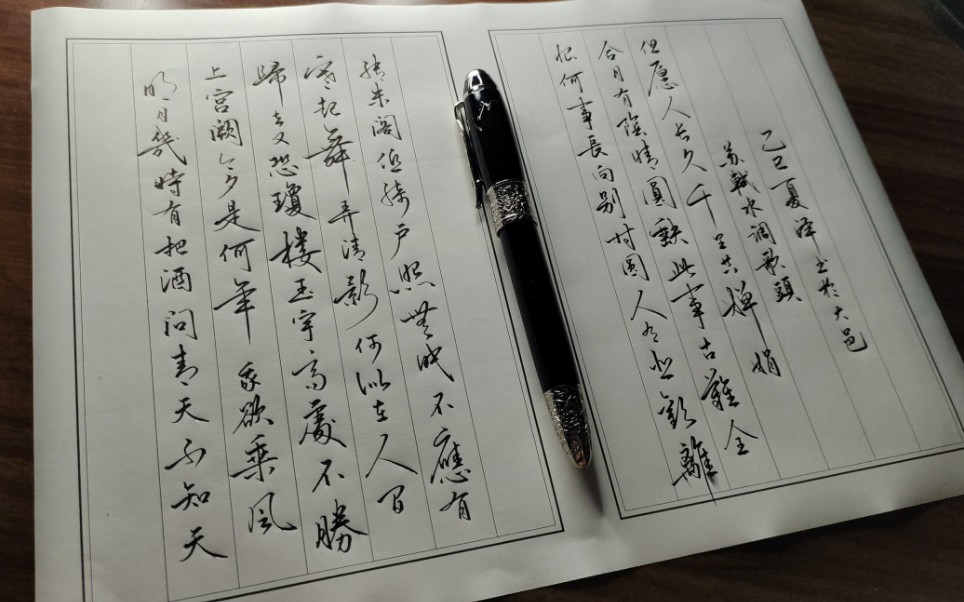 明月幾時有把酒問青天不知天
上宫阙今夕是何年我欲乘風
歸去又恐瓊楼玉宇高處不勝
寒起舞弄清影何似在人间
转朱阁低绮户照無眠不應有
恨何事長向别时圆人有悲歡離
合月有陰晴圓缺此事古難全
但愿人长久千里共婵娟
苏轼水调歌頭
乙巳夏泽书於大邑